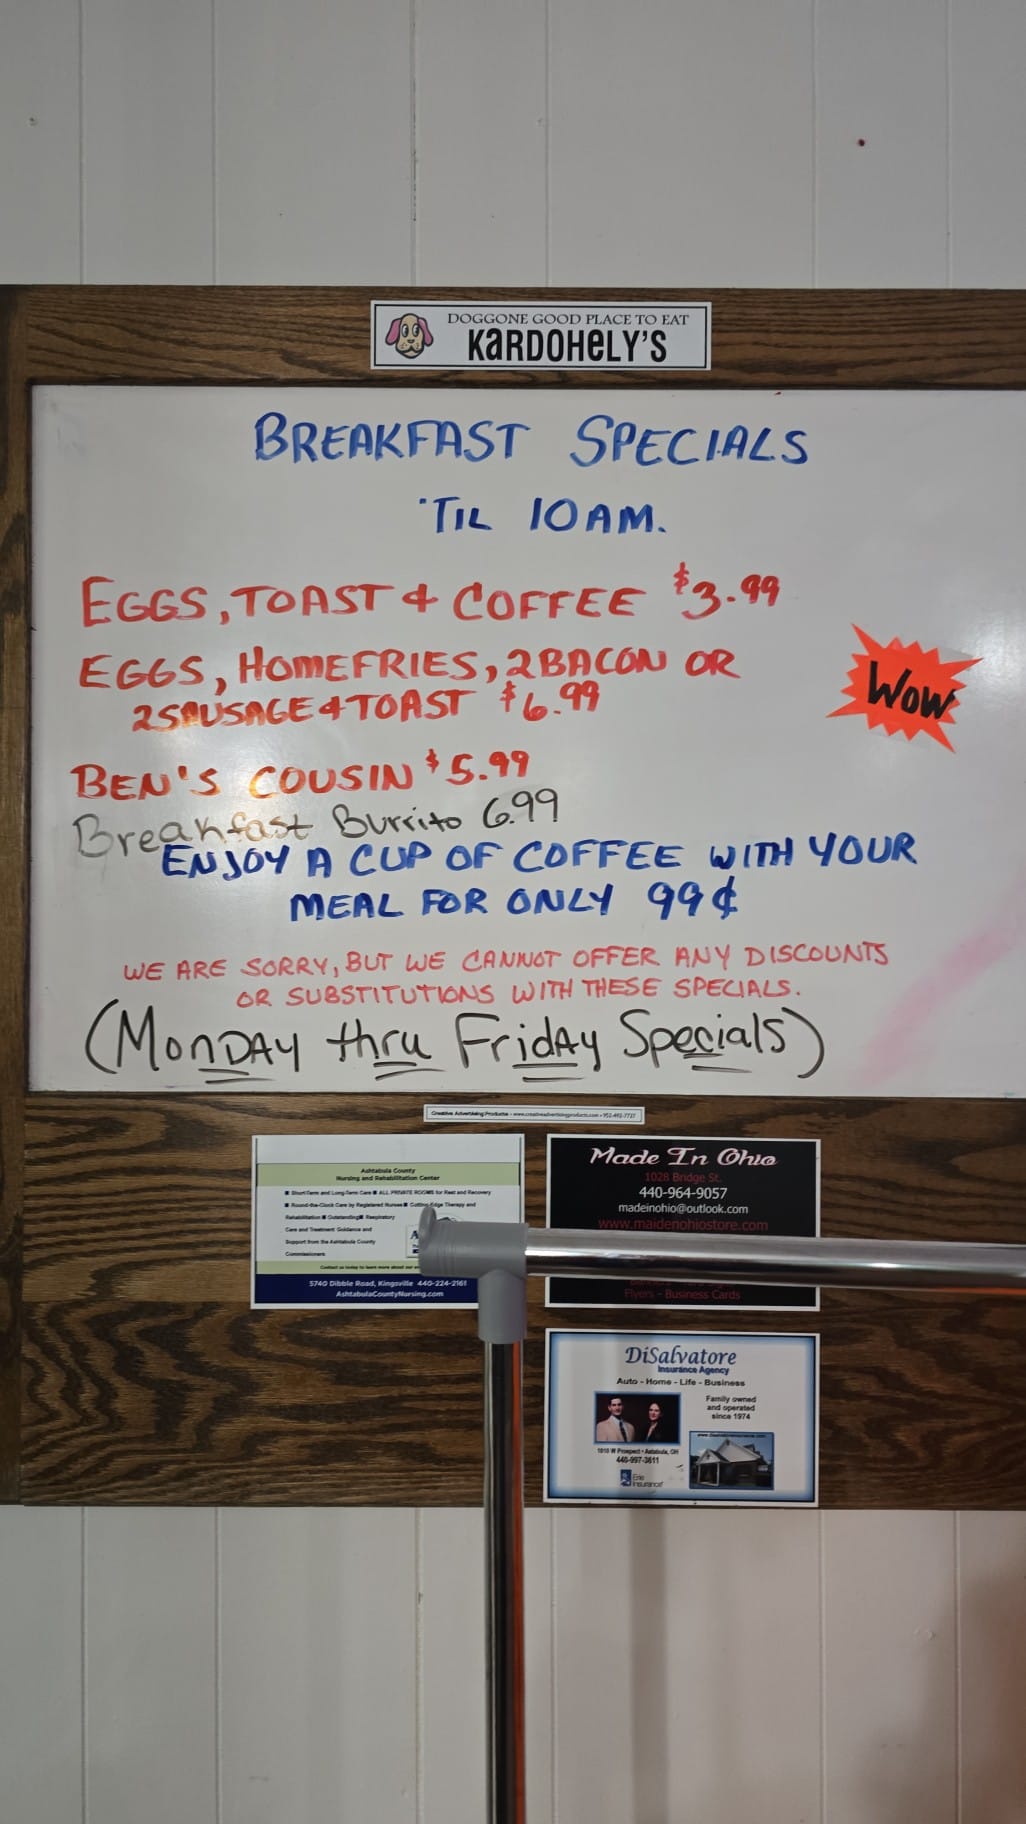 DOGGONE GOOD PLACE TO EAT
KARDOHELY'S
BREAKFAST SPECIALS
'TIL 10AM.
EGGS, TOAST & COFFEE $3.99
EGGS, HOMEFRIES, 2 BACON OR
2 SAUSAGE & TOAST $6.99
WOW
BEN'S COUSIN $5.99
Breakfast Burrito 6.99
ENJOY A CUP OF COFFEE WITH YOUR
MEAL FOR ONLY 99¢
WE ARE SORRY, BUT WE CANNOT OFFER ANY DISCOUNTS
OR SUBSTITUTIONS WITH THESE SPECIALS.
(MONDAY thru FridAy Specials)
Creative Advertising Products • www.creativeadvertisingproducts.com • 952-492-7727
Ashtabula County
Nursing and Rehabilitation Center
Short-Term and Long-Term Care ■ ALL PRIVATE ROOMS for Rest and Recovery
Round-the-Clock Care by Registered Nurses ■ Cutting Edge Therapy and
Rehabilitation ■ Outstanding ■ Respiratory
Care and Treatment Guidance and
Support from the Ashtabula County
Commissioners
Contact us today to learn more about our
5740 Dibble Road, Kingsville 440-224-2161
AshtabulaCountyNursing.com
Made In Ohio
1028 Bridge St.
440-964-9057
madeinohio@outlook.com
www.maidenohiostore.com
Flyers - Business Cards
DiSalvatore
Insurance Agency
Auto - Home - Life - Business
Family owned
and operated
since 1974
1010 W Prospect • Astabula, OH
440-997-3611
Erie
Insurance